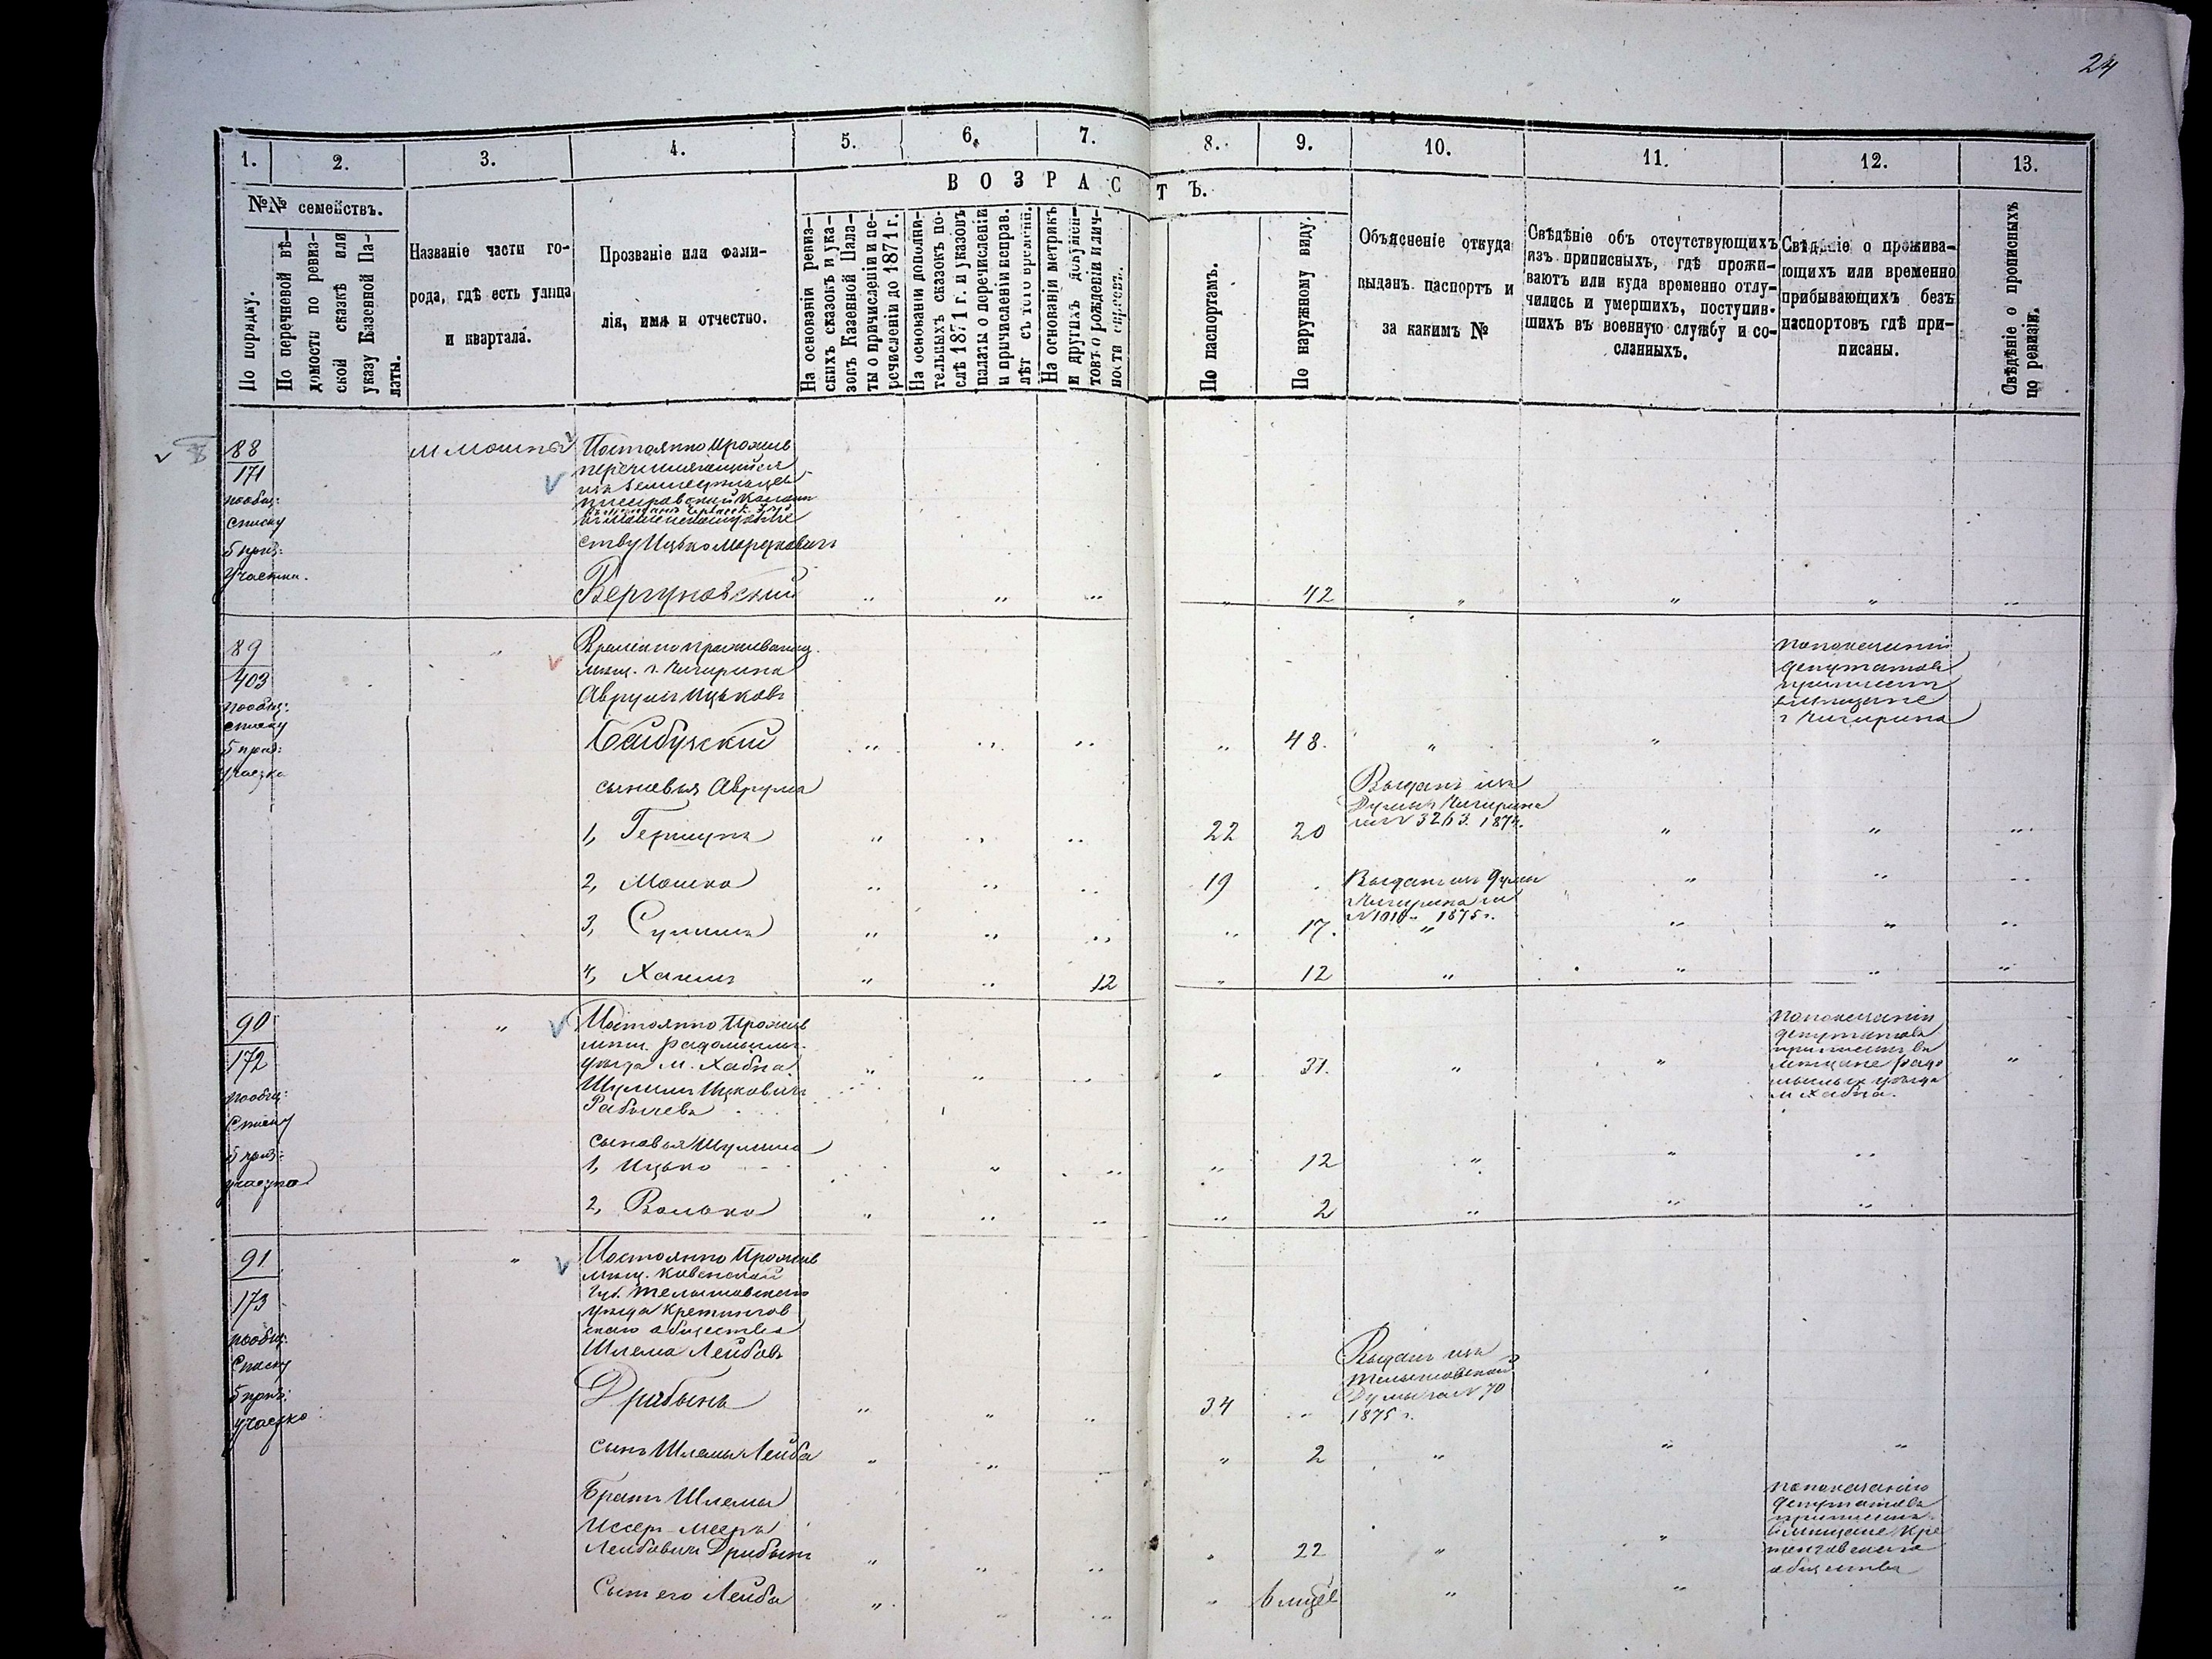 24
1.
2.
3.
4.
5.
6.
7.
8.
9.
10.
11.
12.
13.
№№ семействъ.
По порядку.
По перечневой вѣ-
домости по ревиз-
ской сказкѣ или
указу Казенной Па-
латы.
Названіе части го-
рода, гдѣ есть улица
и квартала.
Прозваніе или фами-
лія, имя и отчество.
ВОЗРАСТЪ.
На основаніи ревиз-
скихъ сказокъ и ука-
зовъ Казенной Пала-
ты о причисленіи и пе-
речисленіи до 1871 г.
На основаніи дополни-
тельныхъ сказокъ по-
слѣ 1871 г. и указовъ
палаты о перечисленіи
и причисленіи исправ.
лѣт съ того времени.
На основаніи метрикъ
и другихъ докумен-
товъ о рожденіи и лич-
ности евреевъ.
По паспортамъ.
По наружному виду.
Объясненіе откуда
выданъ паспортъ и
за какимъ №
Свѣдѣніе объ отсутствующихъ
изъ приписныхъ, гдѣ прожи-
ваютъ или куда временно отлу-
чились и умершихъ, поступив-
шихъ въ военную службу и со-
сланныхъ.
Свѣдѣніе о прожива-
ющихъ или временно
прибывающихъ безъ
паспортовъ гдѣ при-
писаны.
Свѣдѣніе о прописныхъ
по ревизіи.
88
171
пообщ:
списку
5 приз:
Участка.
Постоянно прожив
перечисляющійся
изъ
ству Ицько Мордковичъ
Вергуновскій
42
89
403
пообщ:
списку
5 приз:
Временно проживающ.
мѣщ. г. Чигирина
Аврумъ Ицьковъ
Байбузскій
48.
попоказанію
депутатовъ
г Чигирина
сыновья Аврума
1, Гершунъ
22
20
Выданъ изъ
Думы Чигирина
2, Мошко
19
Выданъ изъ Думы
Чигирина за
1875 г.
3,
17.
4,
12
12
90
172
пообщ:
Списку
5 приз:
Постоянно прожив
мѣщ. радомысль.
уѣзда м. Хабна
Шулимъ Ицковичъ
31.
попоказанію
депутатовъ
мѣщане радо
мысльск уѣзда
м Хабна.
сыновья Шулима
1, Ицько
12
2, Волько
2
91
173
пообщ:
Списку
5 приз:
Постоянно прожив
мѣщ. Ковенской
губ. Тельшовскаго
уѣзда Кретингов
скаго общества
Шлема Лейбовъ
Дрибынъ
34
Выданъ изъ
Тельшовской
Думы за № 70
1875 г.
сынъ Шлемы Лейба
2
Братъ Шлемы
Иссеръ-Мееръ
Лейбовичъ Дрибынъ
22
попоказанію
депутатовъ
мѣщане Кре
общества
Сынъ его Лейба